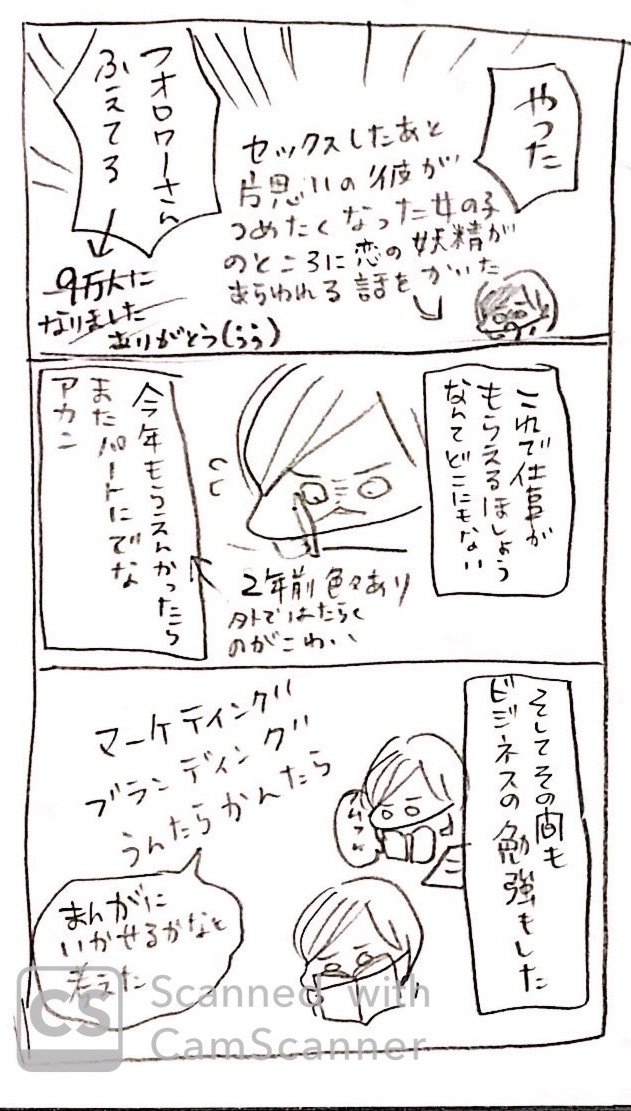 やった
セックスしたあと
片思いの彼が
つめたくなった女の子
のところに恋の妖精が
あらわれる話をかいた
フォロワーさん
ふえてる
9万人に
なりました
ありがとう(うぅ)
これで仕事が
もらえるほしょう
なんてどこにもない
2年前色々あり
外ではたらく
のがこわい
今年もらえんかったら
またパートにでな
アカン
そしてその間も
ビジネスの勉強もした
フムフム
マーケティング
ブランディング
うんたらかんたら
まんがに
いかせるかなと
考えた
CS
Scanned with
CamScanner